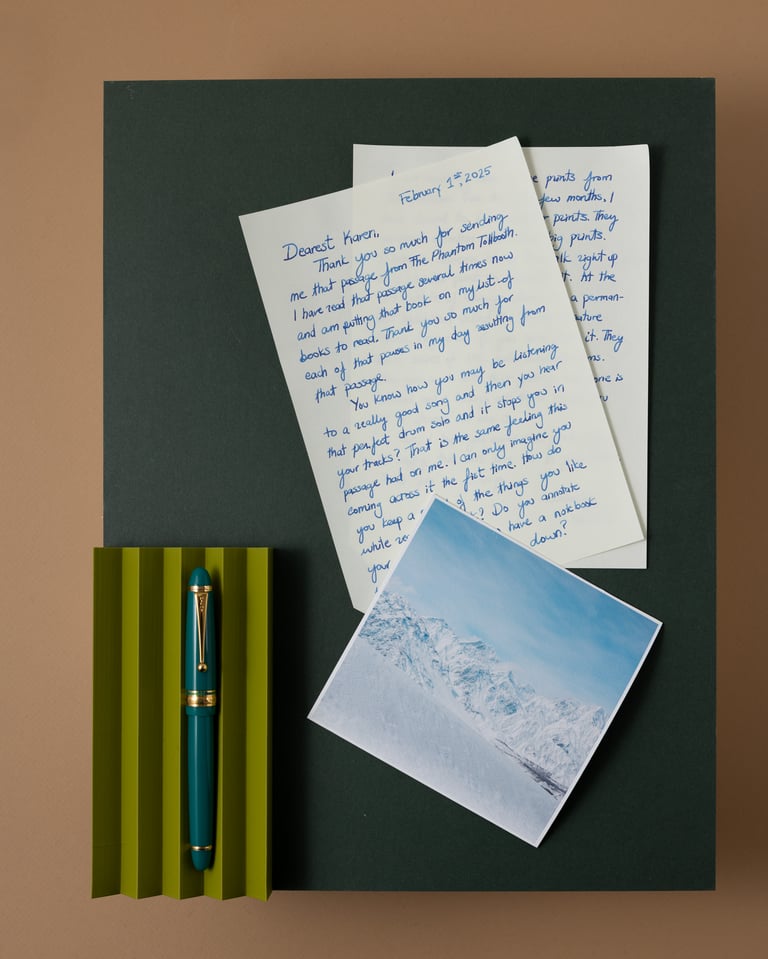 February 1st, 2025
Dearest Karen,
Thank you so much for sending
me that passage from The Phantom Tollbooth.
I have read that passage several times now
and am putting that book on my list of
books to read. Thank you so much for
each of that pauses in my day resulting from
that passage.
You know how you may be listening
to a really good song and then you hear
that perfect drum solo and it stops you in
your tracks? That is the same feeling this
passage had on me. I can only imagine you
coming across it the fist time. How do
you keep a of the things you like
white ? Do you annotate
your have a notebook
down?
prints from
few months, I
prints. They
big prints.
right up
t. At the
a perman-
ature
it. They
ms.
one is